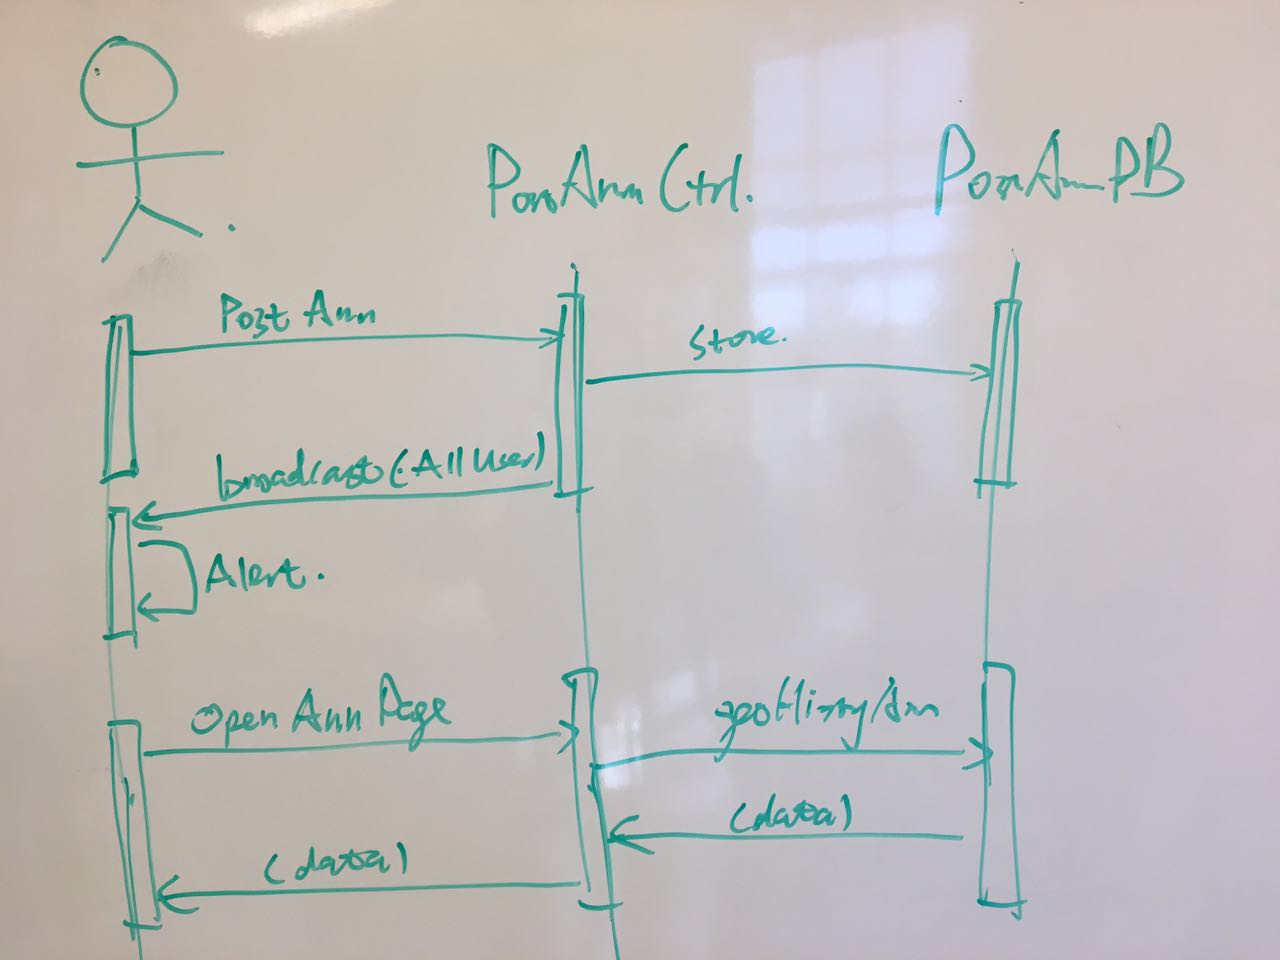 PostAnn Ctrl.
PostAnn DB
Post Ann
store.
broadcast(All User)
Alert.
Open Ann Page
getHistoryAnn
(data)
(data)